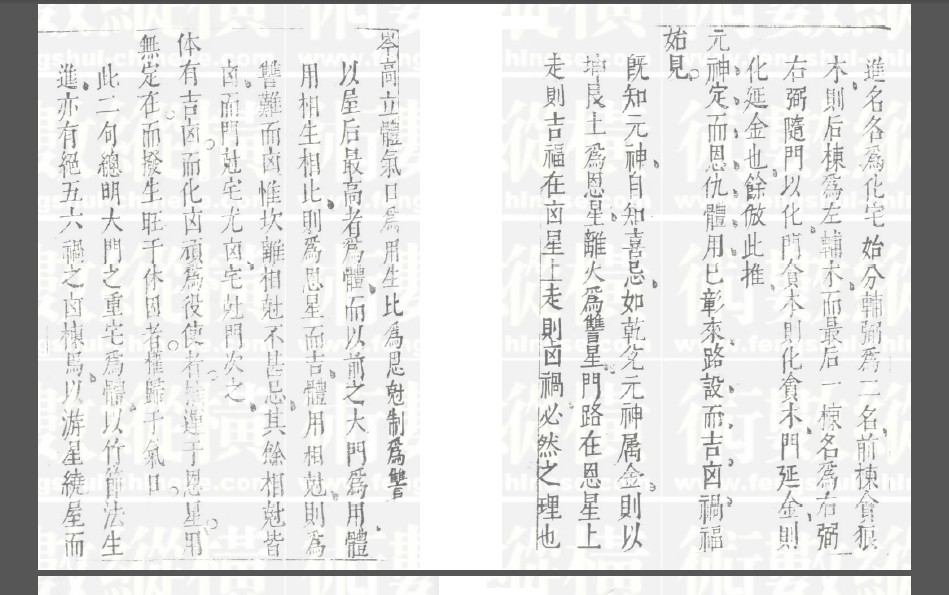 進名各爲化宅始分輔弼爲二名前棟貪狼
木則后棟爲左輔木而最后一棟名爲右弼
右弼隨門以化門貪木則化貪木門延金則
化延金也餘倣此推
元神定而恩仇體用已彰來路設而吉凶禍福
始見
旣知元神自知喜忌如乾兌元神属金則以
坤艮土爲恩星離火爲讐星門路在恩星上
走則吉福在凶星上走則凶禍必然之理也
岑向立體氣口爲用生比爲恩尅制爲讐
以屋后最高者爲體而以前之大門爲用體
用相生相比則爲恩星而吉體用相尅則爲
讐難而凶惟坎離相尅不甚忌其餘相尅皆
凶而門尅宅尤凶宅尅門次之
体有吉凶而化凶頑爲役使者運于恩星用
無定在而撥生旺于休囚者權歸于氣口
此二句總明大門之重宅爲體以竹節法生
進亦有絕五六禍之凶棟爲以游星繞屋而